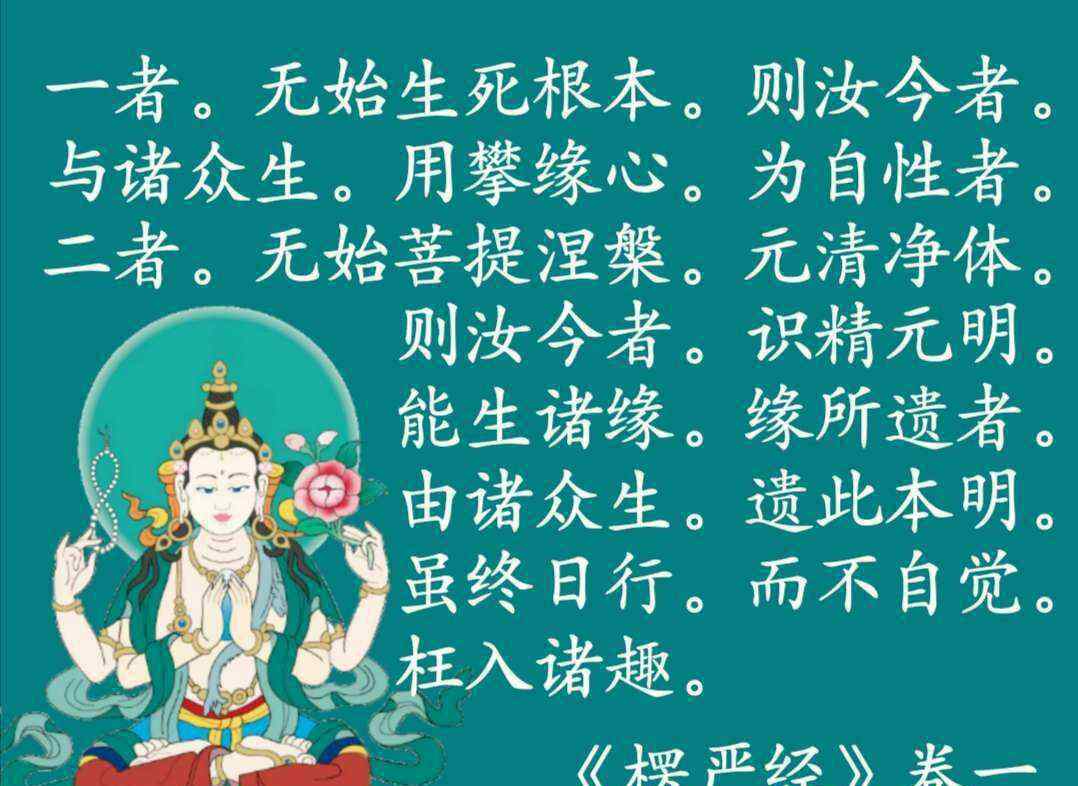 一者。无始生死根本。则汝今者。
与诸众生。用攀缘心。为自性者。
二者。无始菩提涅槃。元清净体。
则汝今者。识精元明。
能生诸缘。缘所遗者。
由诸众生。遗此本明。
虽终日行。而不自觉。
枉入诸趣。
《楞严经》卷一